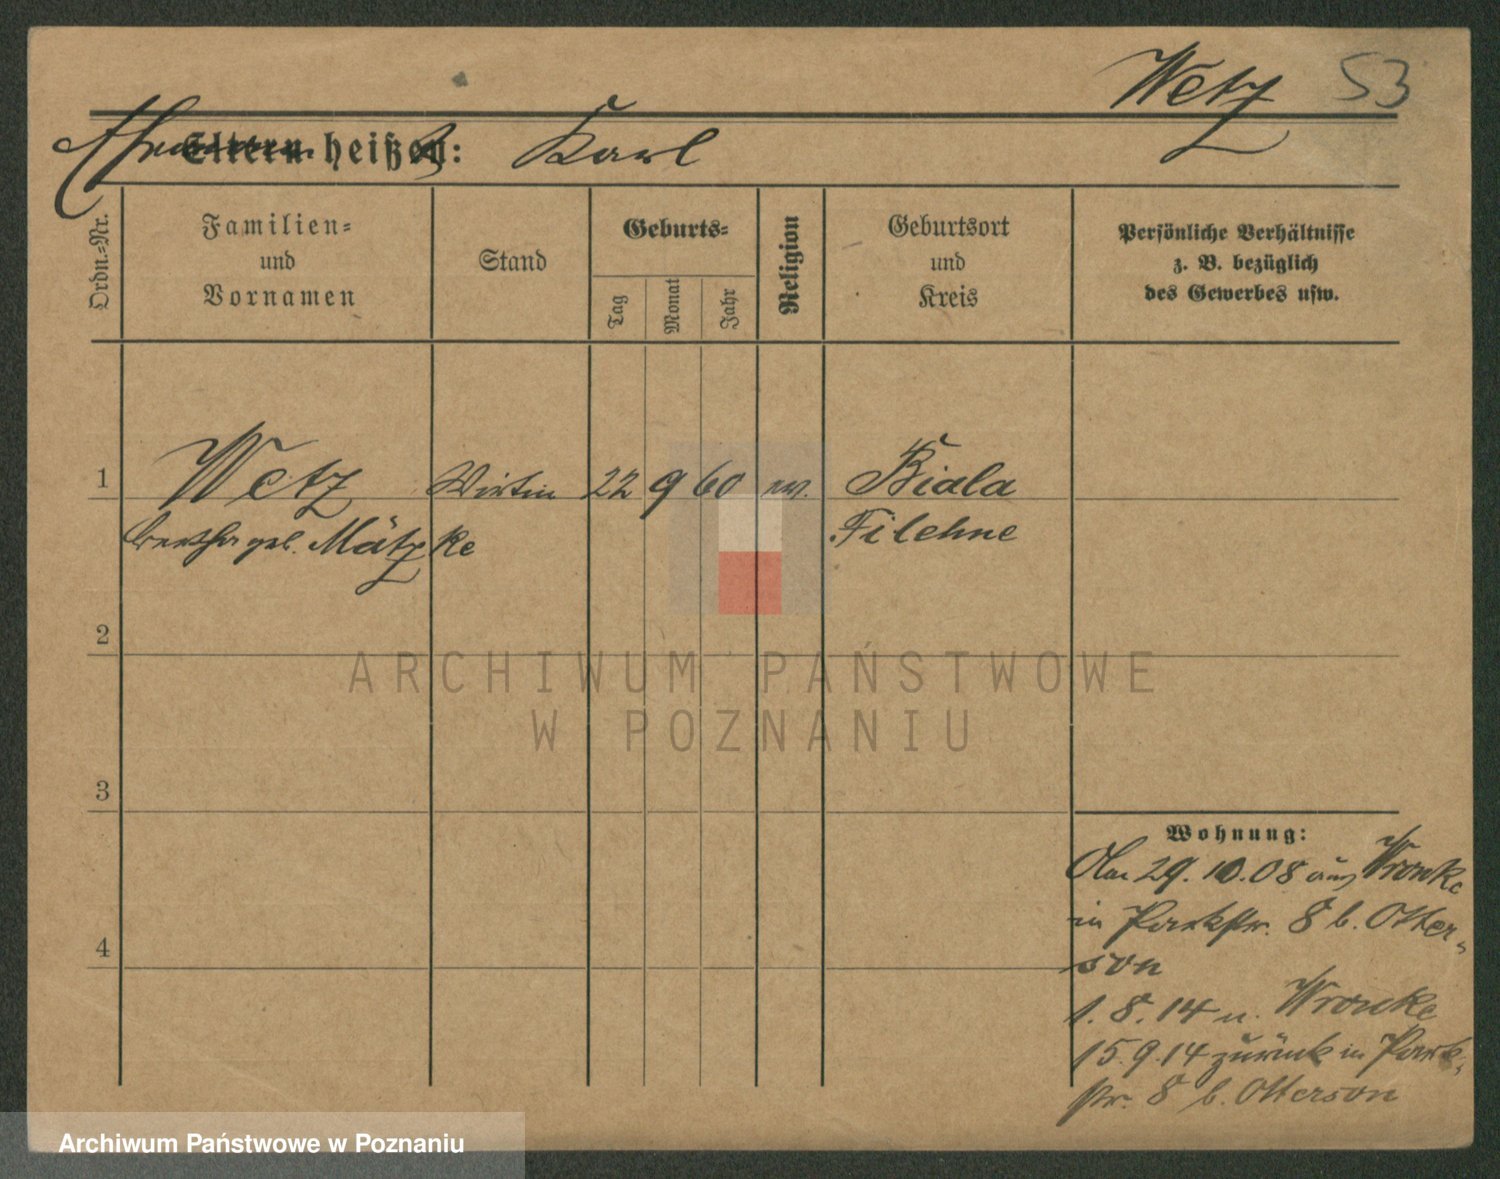 Wetz 53
Eltern heißen: Karl
Ordn.-Nr.
Familien-
und
Vornamen
Stand
Geburts-
Tag
Monat
Jahr
Religion
Geburtsort
und
Kreis
Persönliche Verhältnisse
z. B. bezüglich
des Gewerbes usw.
1 Wetz Wirtin 22 9 60 ev. Biala
Bertha geb. Mätzke Filehne
2
ARCHIWUM PAŃSTWOWE
W POZNANIU
3
Wohnung:
29.10.08 aus Wronke
in Parkstr. 8 b. Otter-
son
4
1.8.14 n. Wronke
15.9.14 zurück in Park-
str. 8 b. Otterson
Archiwum Państwowe w Poznaniu